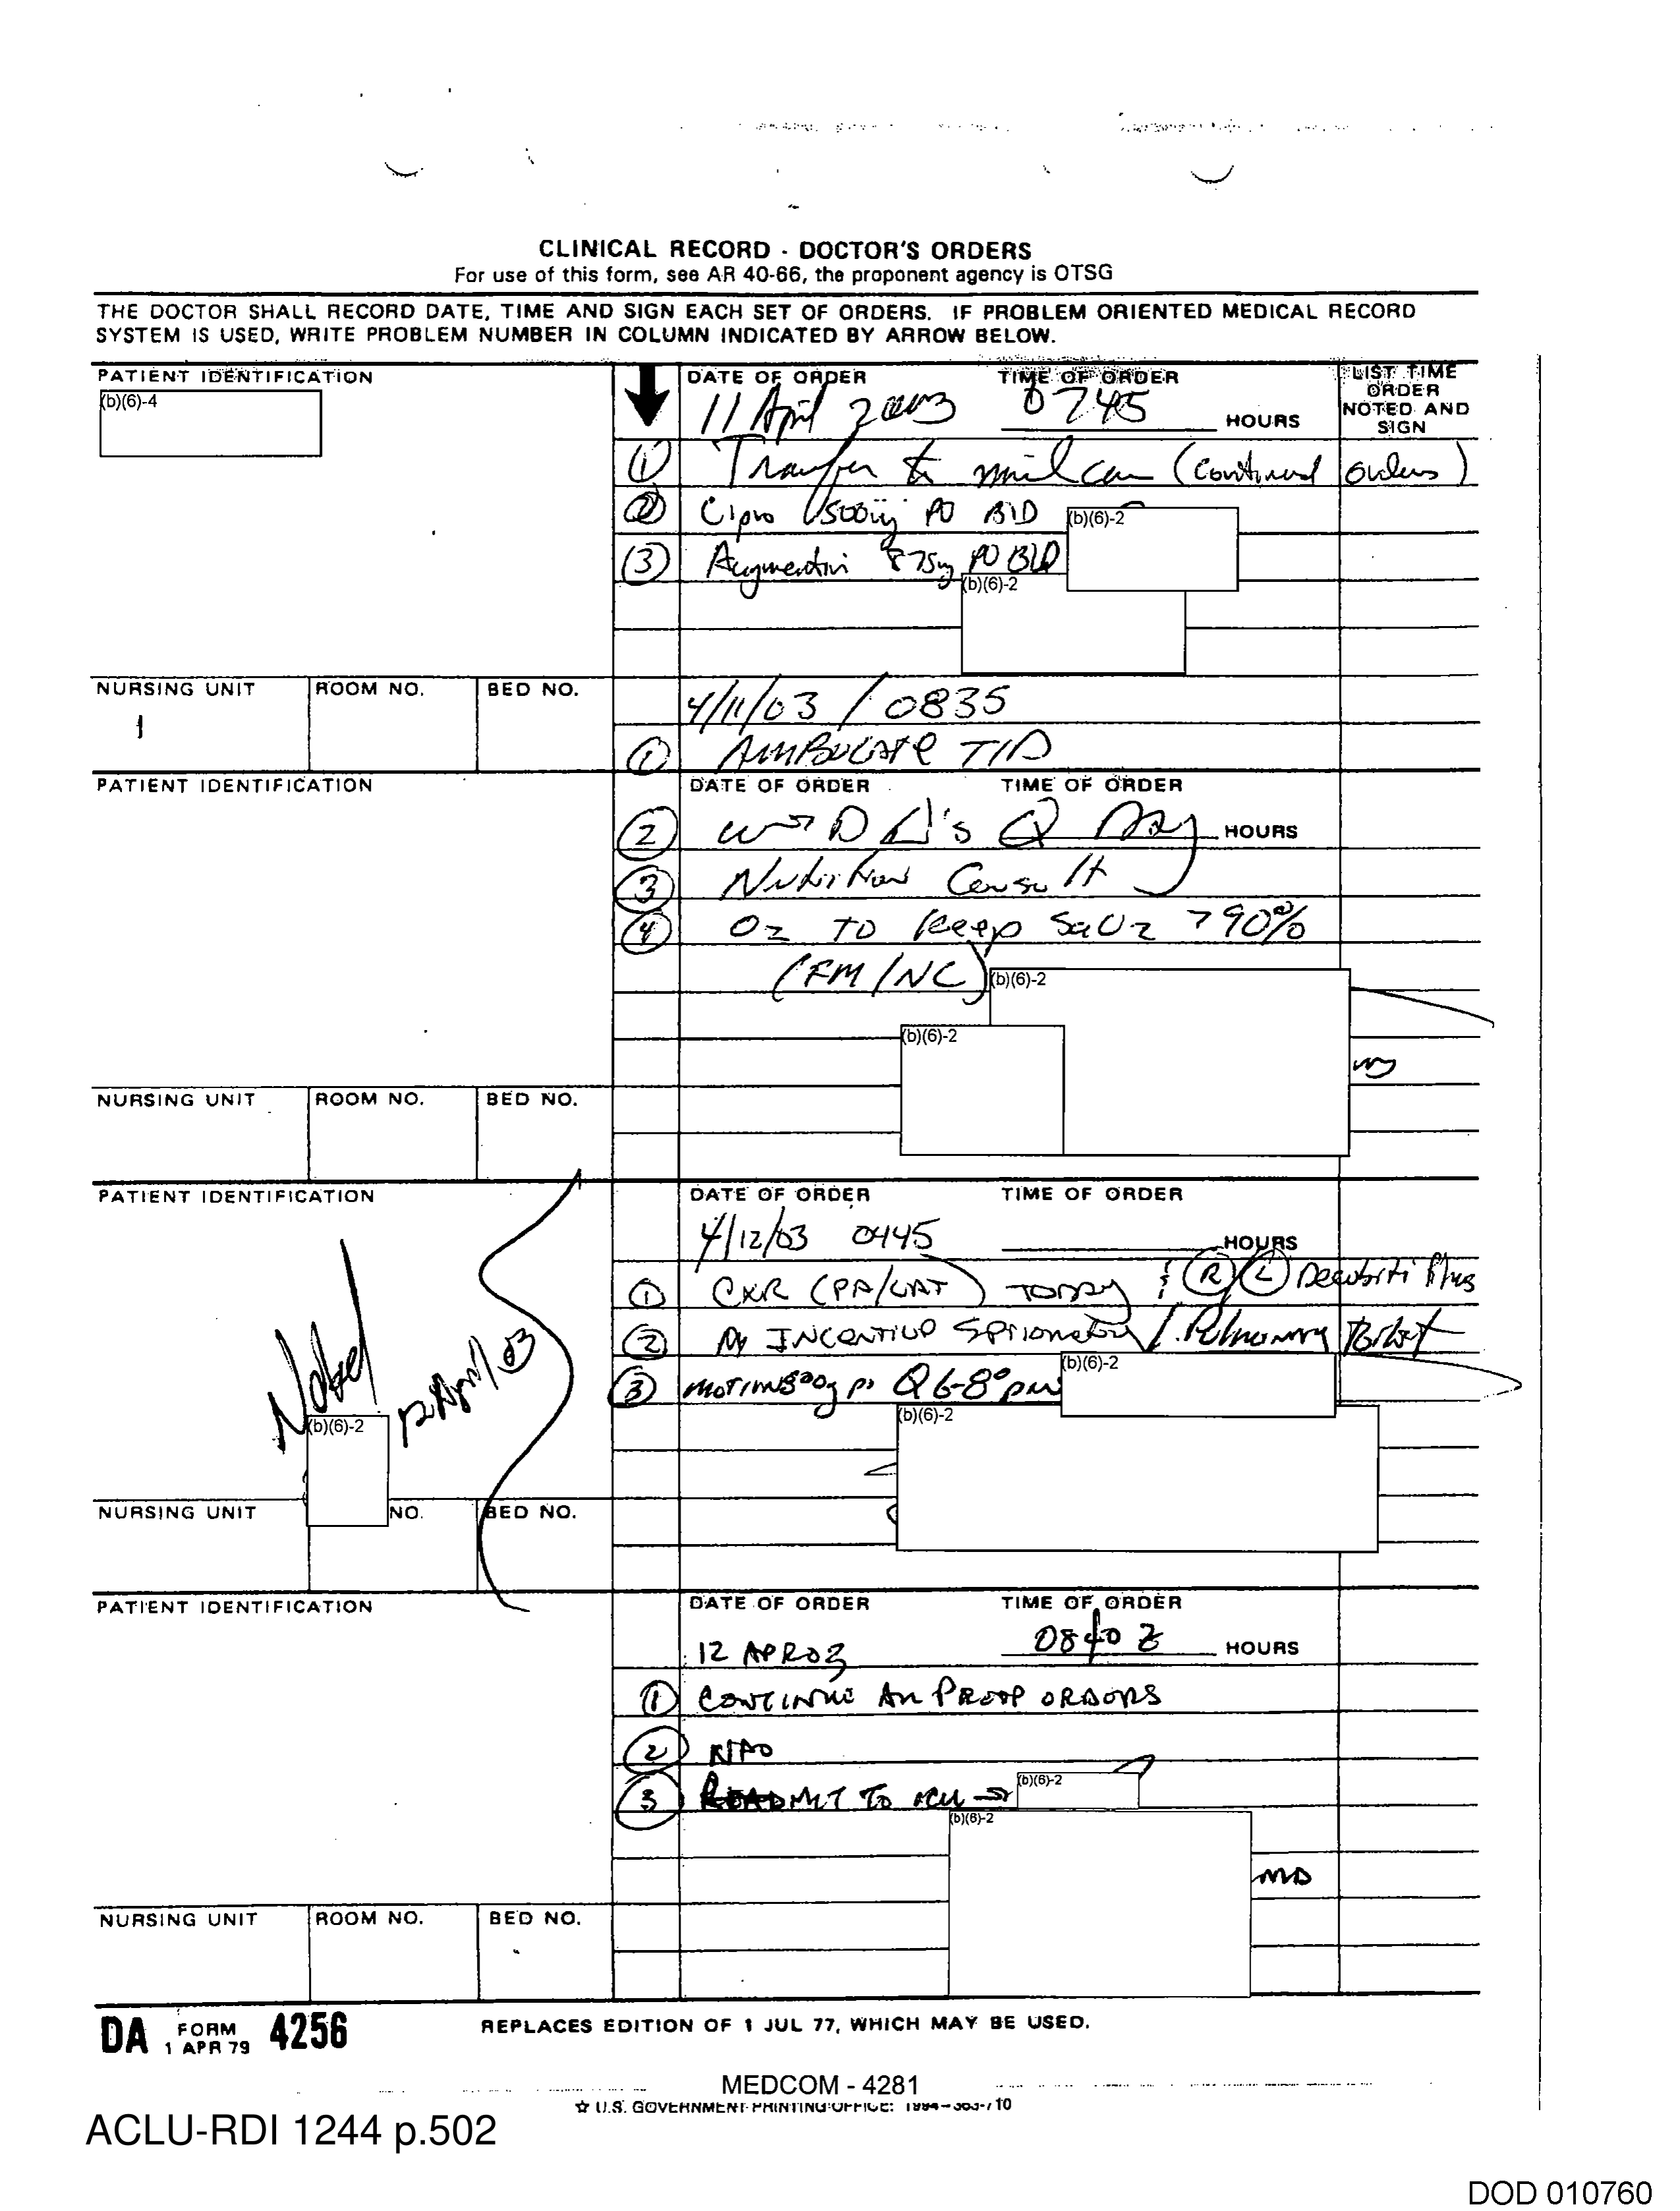 CLINICAL RECORD - DOCTOR'S ORDERS
For use of this form, see AR 40-66, the proponent agency is OTSG
THE DOCTOR SHALL RECORD DATE, TIME AND SIGN EACH SET OF ORDERS. IF PROBLEM ORIENTED MEDICAL RECORD
SYSTEM IS USED, WRITE PROBLEM NUMBER IN COLUMN INDICATED BY ARROW BELOW.
PATIENT IDENTIFICATION
(b)(6)-4
DATE OF ORDER TIME OF ORDER
LIST TIME
ORDER
NOTED AND
SIGN
11 April 2003 0745 HOURS
① Transfer to (continued orders)
② Cipro 500mg PO BID (b)(6)-2
③ Augmentin 875mg PO BID
(b)(6)-2
NURSING UNIT ROOM NO. BED NO.
1
4/11/03 / 0835
① AMBULATE TID
PATIENT IDENTIFICATION
DATE OF ORDER TIME OF ORDER
② W→D Δ's Q Day HOURS
③ Nutrition Consult
④ O2 TO Keep SaO2 >90%
(FM/NC) (b)(6)-2
(b)(6)-2
NURSING UNIT ROOM NO. BED NO.
PATIENT IDENTIFICATION
DATE OF ORDER TIME OF ORDER
4/12/03 0445 HOURS
① CXR (PA/LAT) TODAY Ⓡ Ⓛ Decubiti films
② INCENTIVE Spirometry / Pulmonary Toilet
③ Motrin 800g po Q 6-8° prn (b)(6)-2
Noted
12 April 03
(b)(6)-2
(b)(6)-2
NURSING UNIT NO. BED NO.
PATIENT IDENTIFICATION
DATE OF ORDER TIME OF ORDER
12 APR 03 0840 Z HOURS
① CONTINUE ALL PREOP ORDERS
② NPO
③ READMIT TO ICU (b)(6)-2
(b)(6)-2
MD
NURSING UNIT ROOM NO. BED NO.
DA FORM 4256
1 APR 79
REPLACES EDITION OF 1 JUL 77, WHICH MAY BE USED.
MEDCOM - 4281
☆ U.S. GOVERNMENT PRINTING OFFICE: 1994-363-710
ACLU-RDI 1244 p.502
DOD 010760